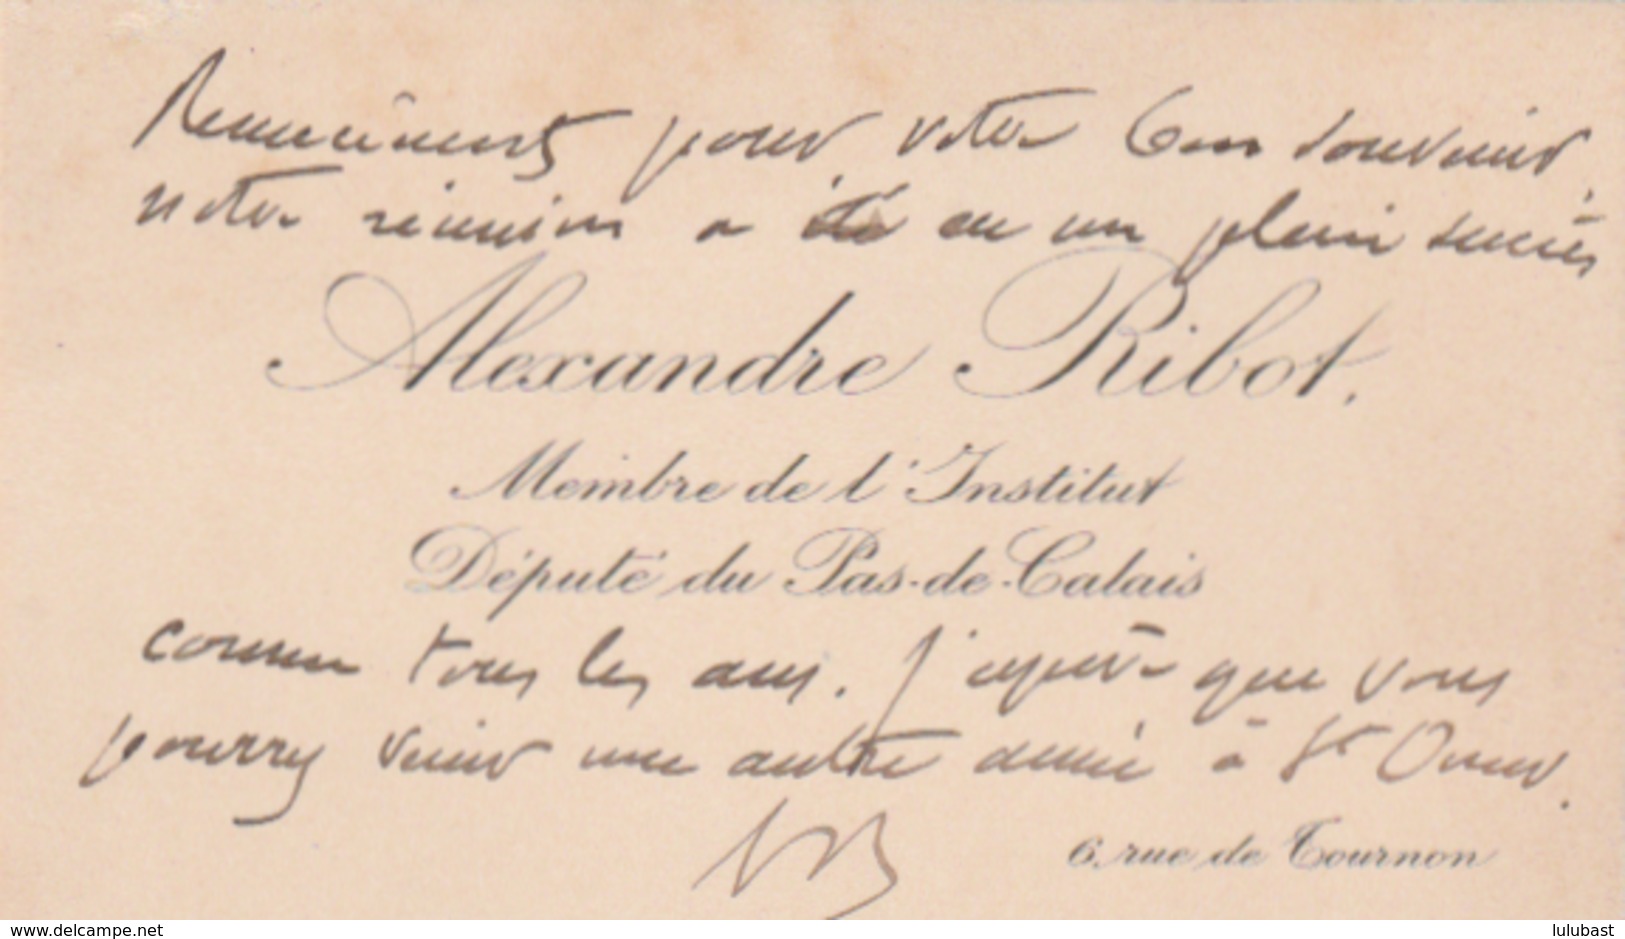 Remerciements pour votre bon souvenir.
notre réunion a eu un plein succès
Alexandre Ribot.
Membre de l'Institut
Député du Pas-de-Calais
comme tous les ans. J'espère que vous
pourrez venir une autre année à St Omer.
6, rue de Tournon
delcampe.net
lulubast